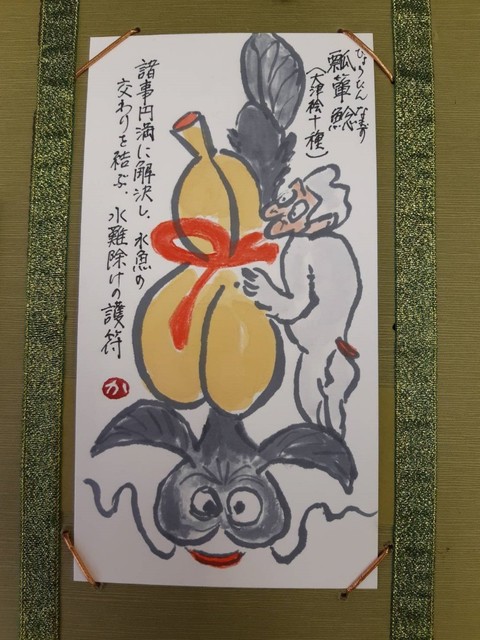 瓢箪鯰
ひょうたんなまず
(大津絵十種)
諸事円満に解決し、水魚の
交わりを結ぶ、水難除けの護符
か